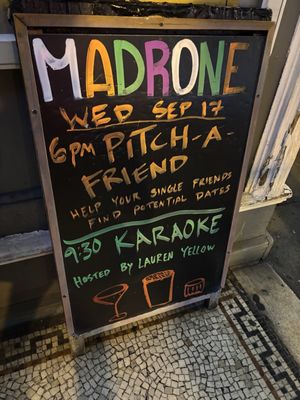 MADRONE
WED SEP 17
6PM PITCH-A-
FRIEND
HELP YOUR SINGLE FRIENDS
FIND POTENTIAL DATES
9:30 KARAOKE
HOSTED BY LAUREN YELLOW